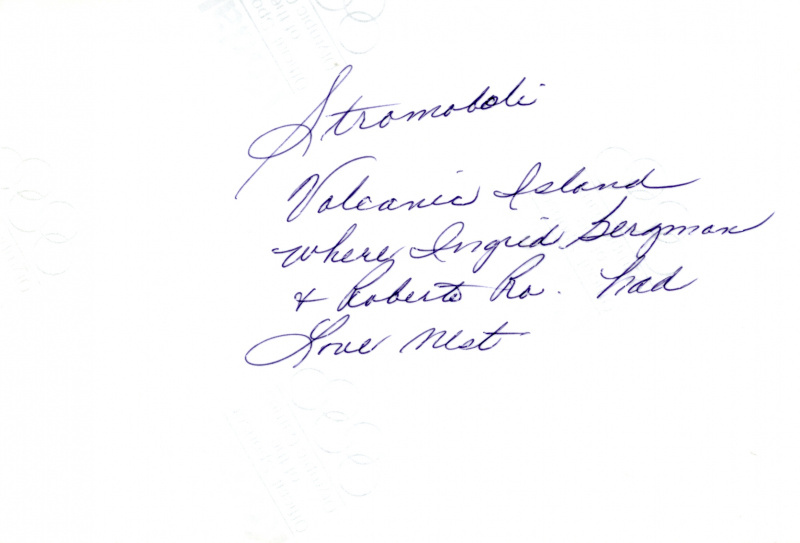 Stromoboli
Volcanic Island
where Ingrid Bergman
& Roberto Ro. had
Love Nest